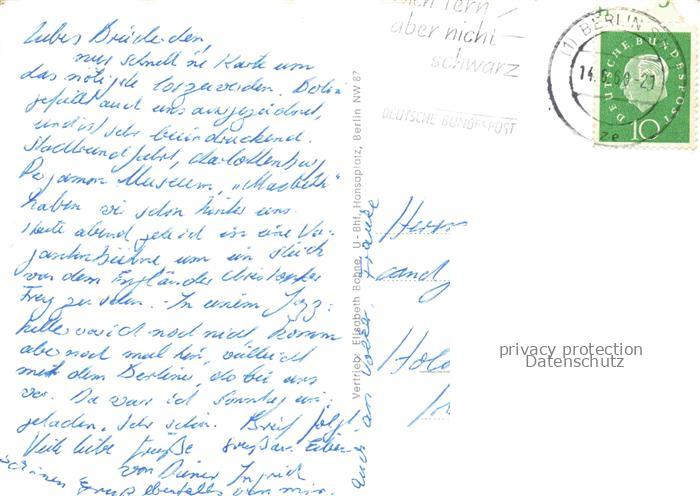 Liebes Brüderchen,
nur schnell 'ne Karte um
das nötigste loszuwerden. Berlin
gefällt auch uns ausgezeichnet,
und ist sehr beeindruckend.
Stadtrundfahrt, Charlottenburg
Pergamon Museum, "Macbeth"
haben wir schon hinter uns.
Heute abend gehe ich in eine
um ein Stück
von dem Engländer Christopher
Fry zu sehen. - In einem Jazz-
keller war ich noch nicht, komm
aber noch mal hin, vielleicht
mit dem Berliner, der bei uns
war. Da war ich Sonntag ein-
geladen. Sehr schön. Brief folgt.
Viele liebe Grüße
von Deiner Ingrid
schönen Gruß ebenfalls von mir.
auch an Volker, Frauke
Vertrieb: Elisabeth Bohne, U-Bhf. Hansaplatz, Berlin NW 87
fern
aber nicht
schwarz
DEUTSCHE BUNDESPOST
(1) BERLIN
DEUTSCHE BUNDESPOST
10
Herrn
cand
privacy protection
Datenschutz